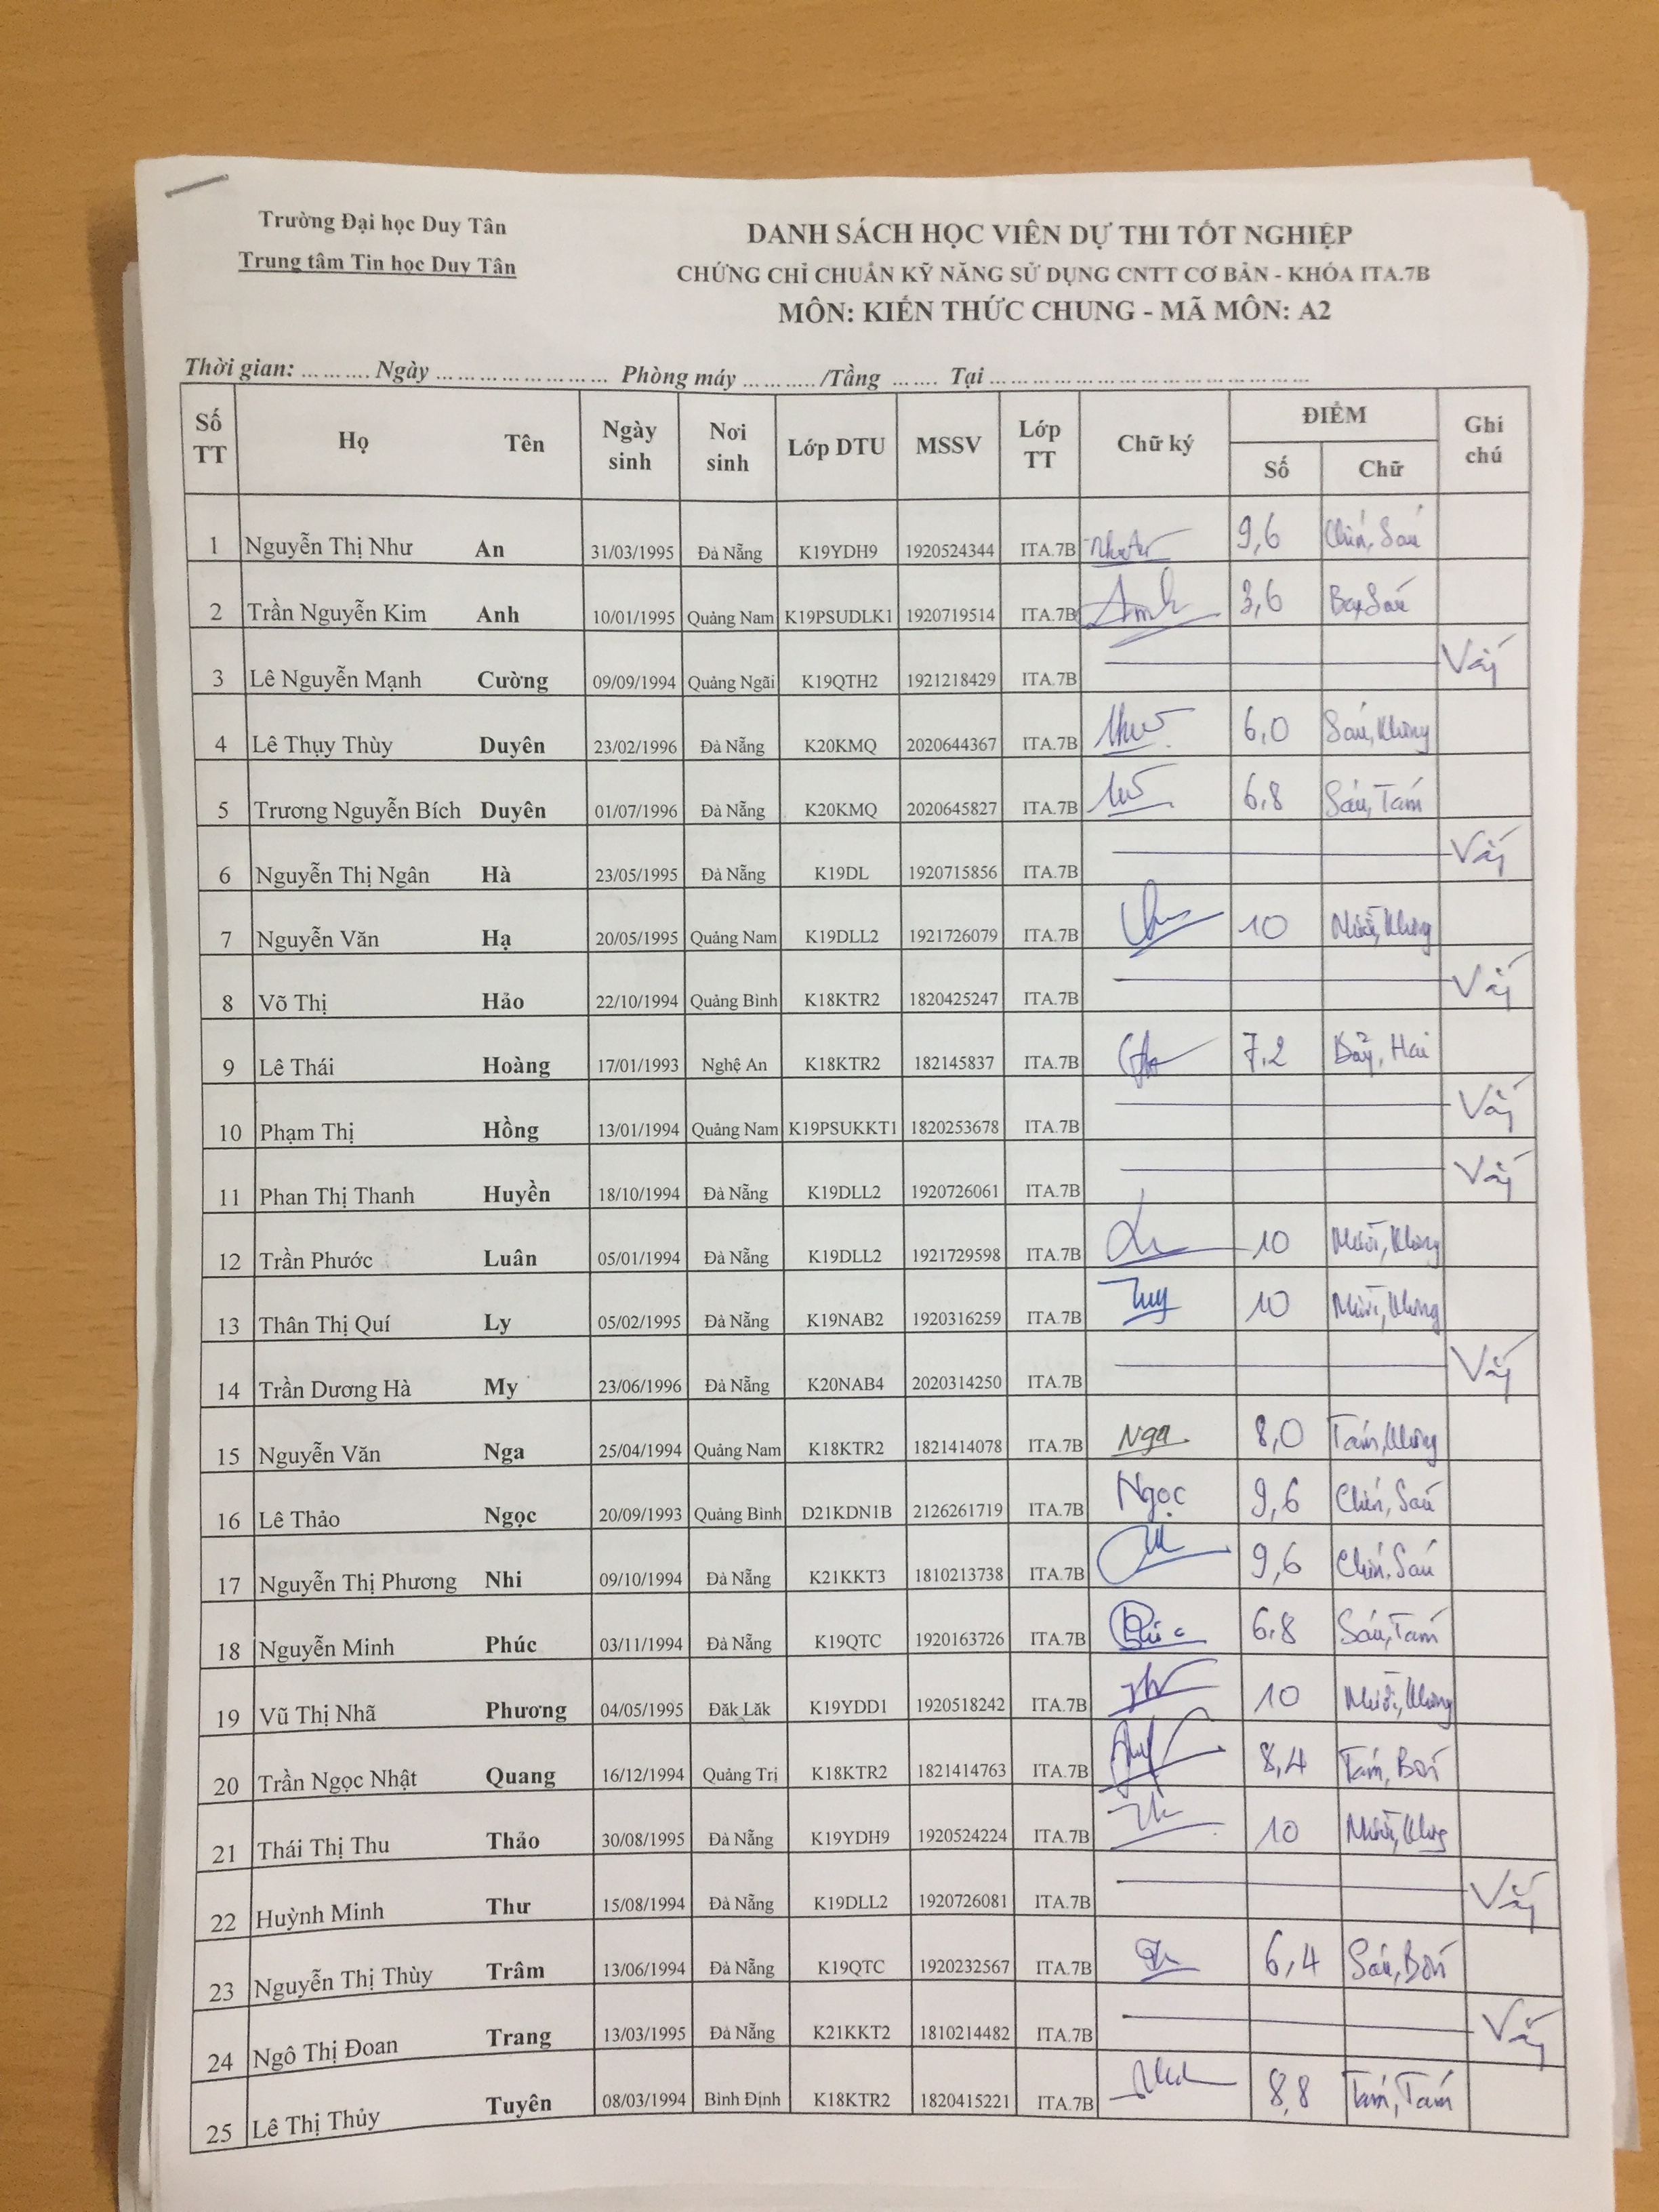 Trường Đại học Duy Tân
Trung tâm Tin học Duy Tân
DANH SÁCH HỌC VIÊN DỰ THI TỐT NGHIỆP
CHỨNG CHỈ CHUẨN KỸ NĂNG SỬ DỤNG CNTT CƠ BẢN - KHÓA ITA.7B
MÔN: KIẾN THỨC CHUNG - MÃ MÔN: A2
Thời gian: ... ... .... Ngày ... ... ... ... ... ... ... ... Phòng máy ... ... .... /Tầng ... .... Tại ... ... ... ... ... ... ... ... ... ... ... ...
Số TT Họ Tên Ngày sinh Nơi sinh Lớp DTU MSSV Lớp TT Chữ ký ĐIỂM Ghi chú
Số Chữ
1 Nguyễn Thị Như An 31/03/1995 Đà Nẵng K19YDH9 1920524344 ITA.7B 9,6 Chín, Sáu
2 Trần Nguyễn Kim Anh 10/01/1995 Quảng Nam K19PSUDLK1 1920719514 ITA.7B Anh 3,6 Ba, Sáu
3 Lê Nguyễn Mạnh Cường 09/09/1994 Quảng Ngãi K19QTH2 1921218429 ITA.7B Vắng
4 Lê Thụy Thùy Duyên 23/02/1996 Đà Nẵng K20KMQ 2020644367 ITA.7B 6,0 Sáu, Không
5 Trương Nguyễn Bích Duyên 01/07/1996 Đà Nẵng K20KMQ 2020645827 ITA.7B 6,8 Sáu, Tám
6 Nguyễn Thị Ngân Hà 23/05/1995 Đà Nẵng K19DL 1920715856 ITA.7B Vắng
7 Nguyễn Văn Hạ 20/05/1995 Quảng Nam K19DLL2 1921726079 ITA.7B 10 Mười, Không
8 Võ Thị Hảo 22/10/1994 Quảng Bình K18KTR2 1820425247 ITA.7B Vắng
9 Lê Thái Hoàng 17/01/1993 Nghệ An K18KTR2 182145837 ITA.7B 7,2 Bảy, Hai
10 Phạm Thị Hồng 13/01/1994 Quảng Nam K19PSUKKT1 1820253678 ITA.7B Vắng
11 Phan Thị Thanh Huyền 18/10/1994 Đà Nẵng K19DLL2 1920726061 ITA.7B Vắng
12 Trần Phước Luân 05/01/1994 Đà Nẵng K19DLL2 1921729598 ITA.7B 10 Mười, Không
13 Thân Thị Quí Ly 05/02/1995 Đà Nẵng K19NAB2 1920316259 ITA.7B 10 Mười, Không
14 Trần Dương Hà My 23/06/1996 Đà Nẵng K20NAB4 2020314250 ITA.7B Vắng
15 Nguyễn Văn Nga 25/04/1994 Quảng Nam K18KTR2 1821414078 ITA.7B Nga 8,0 Tám, Không
16 Lê Thảo Ngọc 20/09/1993 Quảng Bình D21KDN1B 2126261719 ITA.7B Ngọc 9,6 Chín, Sáu
17 Nguyễn Thị Phương Nhi 09/10/1994 Đà Nẵng K21KKT3 1810213738 ITA.7B 9,6 Chín, Sáu
18 Nguyễn Minh Phúc 03/11/1994 Đà Nẵng K19QTC 1920163726 ITA.7B 6,8 Sáu, Tám
19 Vũ Thị Nhã Phương 04/05/1995 Đăk Lăk K19YDD1 1920518242 ITA.7B 10 Mười, Không
20 Trần Ngọc Nhật Quang 16/12/1994 Quảng Trị K18KTR2 1821414763 ITA.7B 8,4 Tám, Bốn
21 Thái Thị Thu Thảo 30/08/1995 Đà Nẵng K19YDH9 1920524224 ITA.7B 10 Mười, Không
22 Huỳnh Minh Thư 15/08/1994 Đà Nẵng K19DLL2 1920726081 ITA.7B Vắng
23 Nguyễn Thị Thùy Trâm 13/06/1994 Đà Nẵng K19QTC 1920232567 ITA.7B 6,4 Sáu, Bốn
24 Ngô Thị Đoan Trang 13/03/1995 Đà Nẵng K21KKT2 1810214482 ITA.7B Vắng
25 Lê Thị Thủy Tuyên 08/03/1994 Bình Định K18KTR2 1820415221 ITA.7B 8,8 Tám, Tám